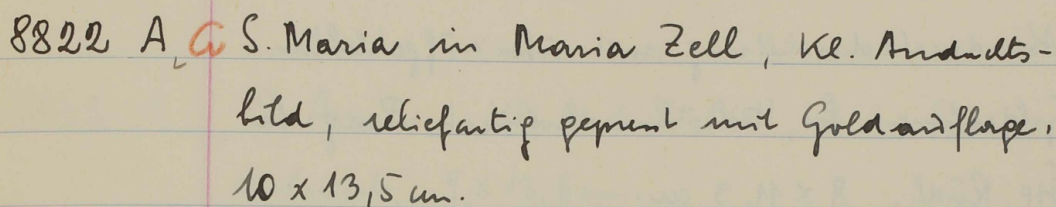 8822 A, G S. Maria in Maria Zell, Kl. Andachts-
bild, reliefartig gepresst mit Goldauflage.
10 x 13,5 cm.